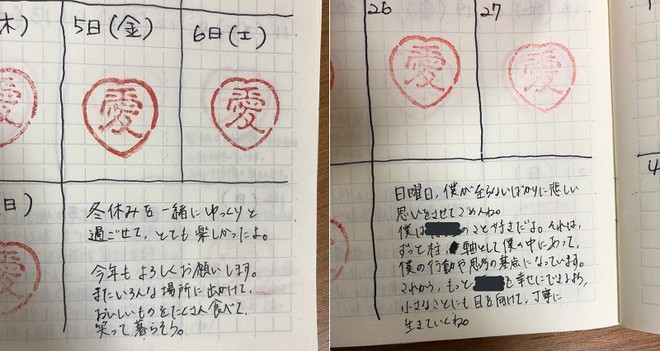 木)
5日(金)
6日(土)
愛
愛
日)
冬休みを一緒にゆっくりと
過ごせて、とても楽しかったよ。
今年もよろしくお願いします。
またいろんな場所に出かけて、
おいしいものをたくさん食べて、
笑って暮らそう。
26
27
愛
愛
日曜日、僕が至らないばかりに悲しい
思いをさせてごめんね。
僕は のことが好きだよ。それは、
ずっと柱、軸として僕の中にあって、
僕の行動や思考の基点になっています。
これから、もっと を幸せにできるよう、
小さなことにも目を向けて、丁寧に
生きていくね。
4